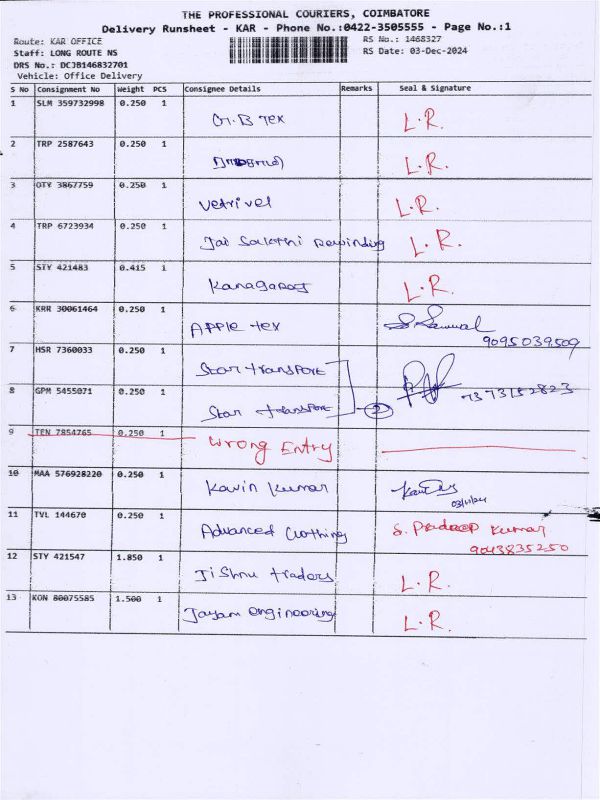 THE PROFESSIONAL COURIERS, COIMBATORE
Delivery Runsheet - KAR - Phone No.:0422-3505555 - Page No.:1
Route: KAR OFFICE RS No.: 1468327
Staff: LONG ROUTE NS RS Date: 03-Dec-2024
DRS No.: DCJB146832701
Vehicle: Office Delivery
S No Consignment No Weight PCS Consignee Details Remarks Seal & Signature
1 SLM 359732998 0.250 1 G.B Tex L.R.
2 TRP 2587643 0.250 1 L.R.
3 OTY 3867759 0.250 1 Vetrivel L.R.
4 TRP 6723934 0.250 1 Jai Sakthi Rewinding L.R.
5 STY 421483 0.415 1 Kanagaraj L.R.
6 KRR 30061464 0.250 1 APPle Tex S. Samual
9095039509
7 HSR 7360033 0.250 1 Star transPort
8 GPM 5455071 0.250 1 Star transPort 2 7373152823
9 TEN 7854765 0.250 1 Wrong Entry
10 MAA 576928220 0.250 1 Kavin Kumar
03/12/24
11 TVL 144670 0.250 1 Advanced Clothing S. Pradeep Kumar
9043835250
12 STY 421547 1.850 1 Jishnu traders L.R.
13 KON 80075585 1.500 1 Jayam engineering L.R.